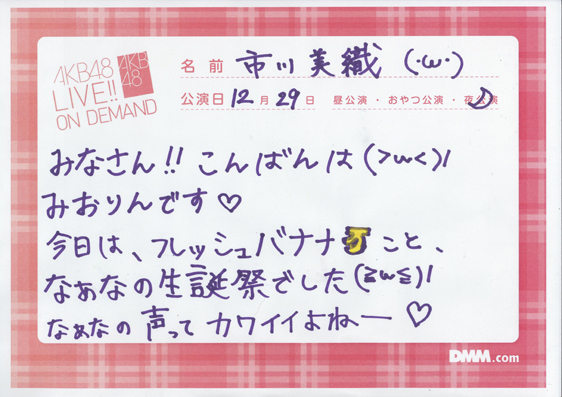 AKB48
LIVE!!
ON DEMAND
AKB
48
名前 市川美織 (・ω・)
公演日 12月29日 昼公演・おやつ公演・夜公演
みなさん!! こんばんは(>ω<)/
みおりんです♡
今日は、フレッシュバナナ🍌こと、
なぁなの生誕祭でした(≧ω≦)/
なぁなの声ってカワイイよねー ♡
DMM.com